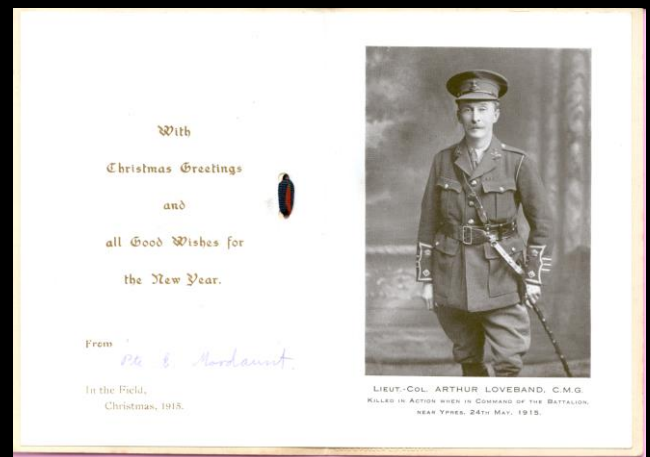 With
Christmas Greetings
and
all Good Wishes for
the New Year.
From
Pte E Mordaunt.
In the Field,
Christmas, 1915.
LIEUT.-COL. ARTHUR LOVEBAND, C.M.G.
KILLED IN ACTION WHEN IN COMMAND OF THE BATTALION,
NEAR YPRES, 24TH MAY, 1915.